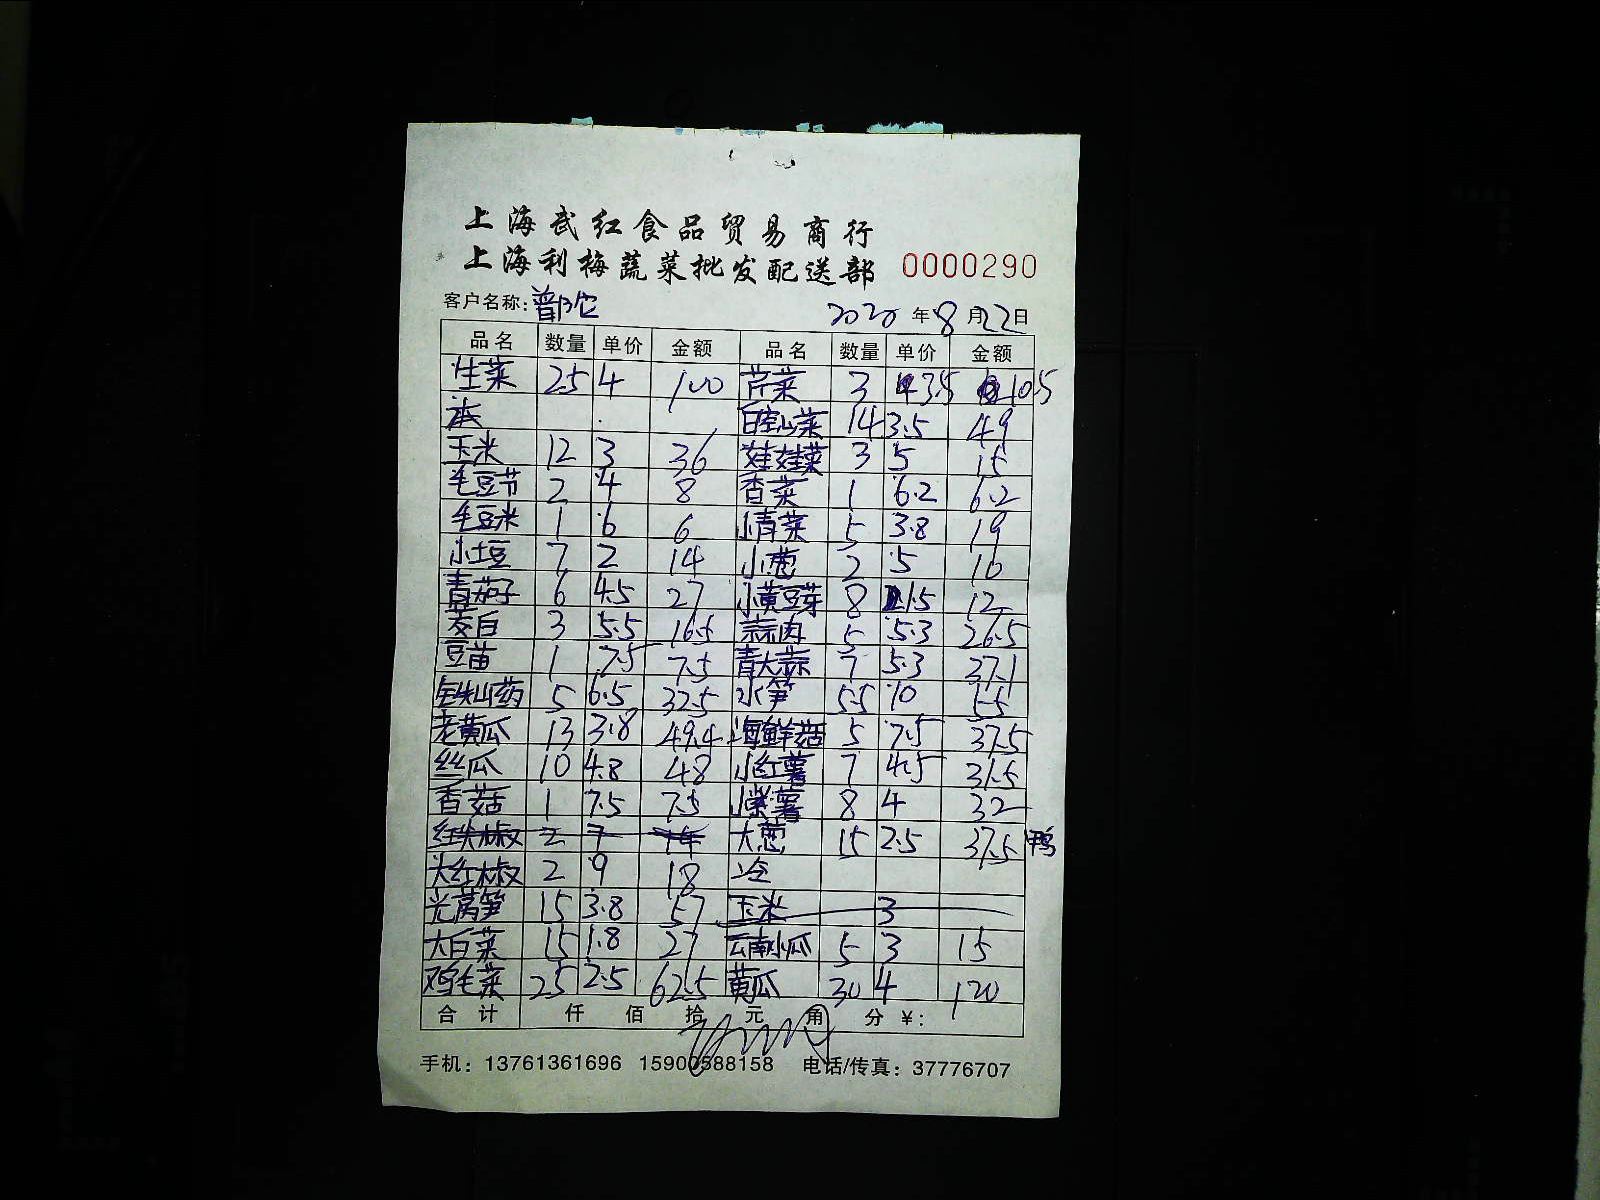 上海武红食品贸易商行
上海利梅蔬菜批发配送部 0000290
客户名称: 普陀 2020 年 8 月 22 日
品名 数量 单价 金额 品名 数量 单价 金额
生菜 25 4 100 芹菜 3 3.5 10.5
14 3.5 49
玉米 12 3 36 娃娃菜 3 5 15
毛豆节 2 4 8 香菜 1 6.2 6.2
毛豆米 1 6 6 小青菜 5 3.8 19
小土豆 7 2 14 小葱 2 5 10
青茄子 6 4.5 27 小黄豆芽 8 1.5 12
茭白 3 5.5 16.5 蒜肉 5 5.3 26.5
豆苗 1 7.5 7.5 青大蒜 7 5.3 37.1
铁山药 5 6.5 32.5 水笋 5.5 10 55
老黄瓜 13 3.8 49.4 海鲜菇 5 7.5 37.5
丝瓜 10 4.8 48 小红薯 7 4.5 31.5
香菇 1 7.5 7.5 小紫薯 8 4 32
红尖椒 2 7 14 大葱 15 2.5 37.5 鸭
大红椒 2 9 18 冷
光莴笋 15 3.8 57 玉米 3
大白菜 15 1.8 27 云南小瓜 5 3 15
鸡毛菜 25 2.5 62.5 黄瓜 30 4 120
合计 仟 佰 拾 元 角 分 ¥:
手机: 13761361696 15900588158 电话/传真: 37776707